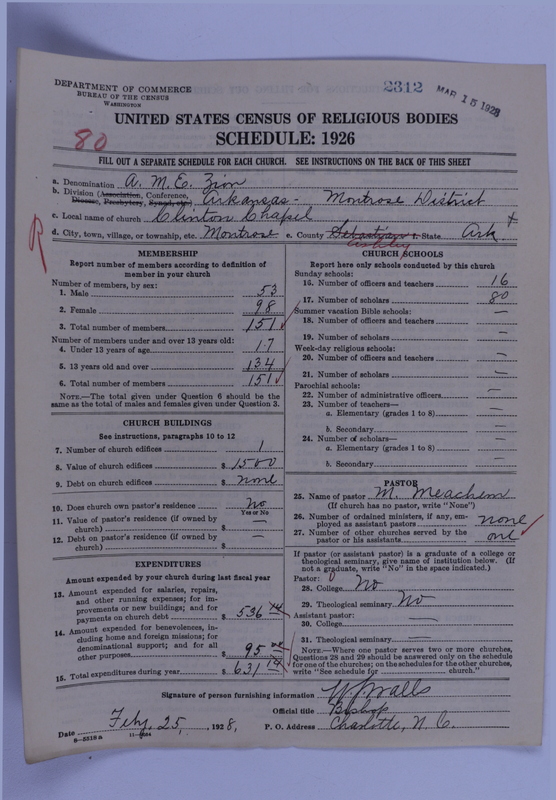 DEPARTMENT OF COMMERCE
BUREAU OF THE CENSUS
WASHINGTON
2312 MAR 15 1928
UNITED STATES CENSUS OF RELIGIOUS BODIES
80
SCHEDULE: 1926
FILL OUT A SEPARATE SCHEDULE FOR EACH CHURCH. SEE INSTRUCTIONS ON THE BACK OF THIS SHEET
a. Denomination A. M. E. Zion
b. Division (Association, Conference, Diocese, Presbytery, Synod, etc.) Arkansas - Montrose District
c. Local name of church Clinton Chapel
d. City, town, village, or township, etc. Montrose e. County Sebastian Ashley f. State Ark
R
MEMBERSHIP
Report number of members according to definition of member in your church
Number of members, by sex:
1. Male 53
2. Female 98
3. Total number of members 151
Number of members under and over 13 years old:
4. Under 13 years of age 17
5. 13 years old and over 134
6. Total number of members 151
NOTE.—The total given under Question 6 should be the
same as the total of males and females given under Question 3.
CHURCH BUILDINGS
See instructions, paragraphs 10 to 12
7. Number of church edifices 1
8. Value of church edifices $ 1500
9. Debt on church edifices $ none
10. Does church own pastor's residence No
Yes or No
11. Value of pastor's residence (if owned by
church) $ —
12. Debt on pastor's residence (if owned by
church) $ —
EXPENDITURES
Amount expended by your church during last fiscal year
13. Amount expended for salaries, repairs,
and other running expenses; for im-
provements or new buildings; and for
payments on church debt $ 536 14
14. Amount expended for benevolences, in-
cluding home and foreign missions; for
denominational support; and for all
other purposes $ 95
15. Total expenditures during year $ 631 14
CHURCH SCHOOLS
Report here only schools conducted by this church
Sunday schools:
16. Number of officers and teachers 16
17. Number of scholars 80
Summer vacation Bible schools:
18. Number of officers and teachers —
19. Number of scholars —
Week-day religious schools:
20. Number of officers and teachers —
21. Number of scholars —
Parochial schools:
22. Number of administrative officers —
23. Number of teachers—
a. Elementary (grades 1 to 8) —
b. Secondary —
24. Number of scholars—
a. Elementary (grades 1 to 8) —
b. Secondary —
PASTOR
25. Name of pastor M. Meachem
(If church has no pastor, write "None")
26. Number of ordained ministers, if any, em-
ployed as assistant pastors none
27. Number of other churches served by the
pastor or his assistants one
If pastor (or assistant pastor) is a graduate of a college or
theological seminary, give name of institution below. (If
not a graduate, write "No" in the space indicated.)
Pastor:
28. College No
29. Theological seminary No
Assistant pastor:
30. College —
31. Theological seminary —
NOTE.—Where one pastor serves two or more churches,
Questions 28 and 29 should be answered only on the schedule
for one of the churches; on the schedules for the other churches,
write "See schedule for church."
Signature of person furnishing information W J Walls
Official title Bishop
Date Feby. 25, 1928, P. O. Address Charlotte, N. C.
8-5318 a